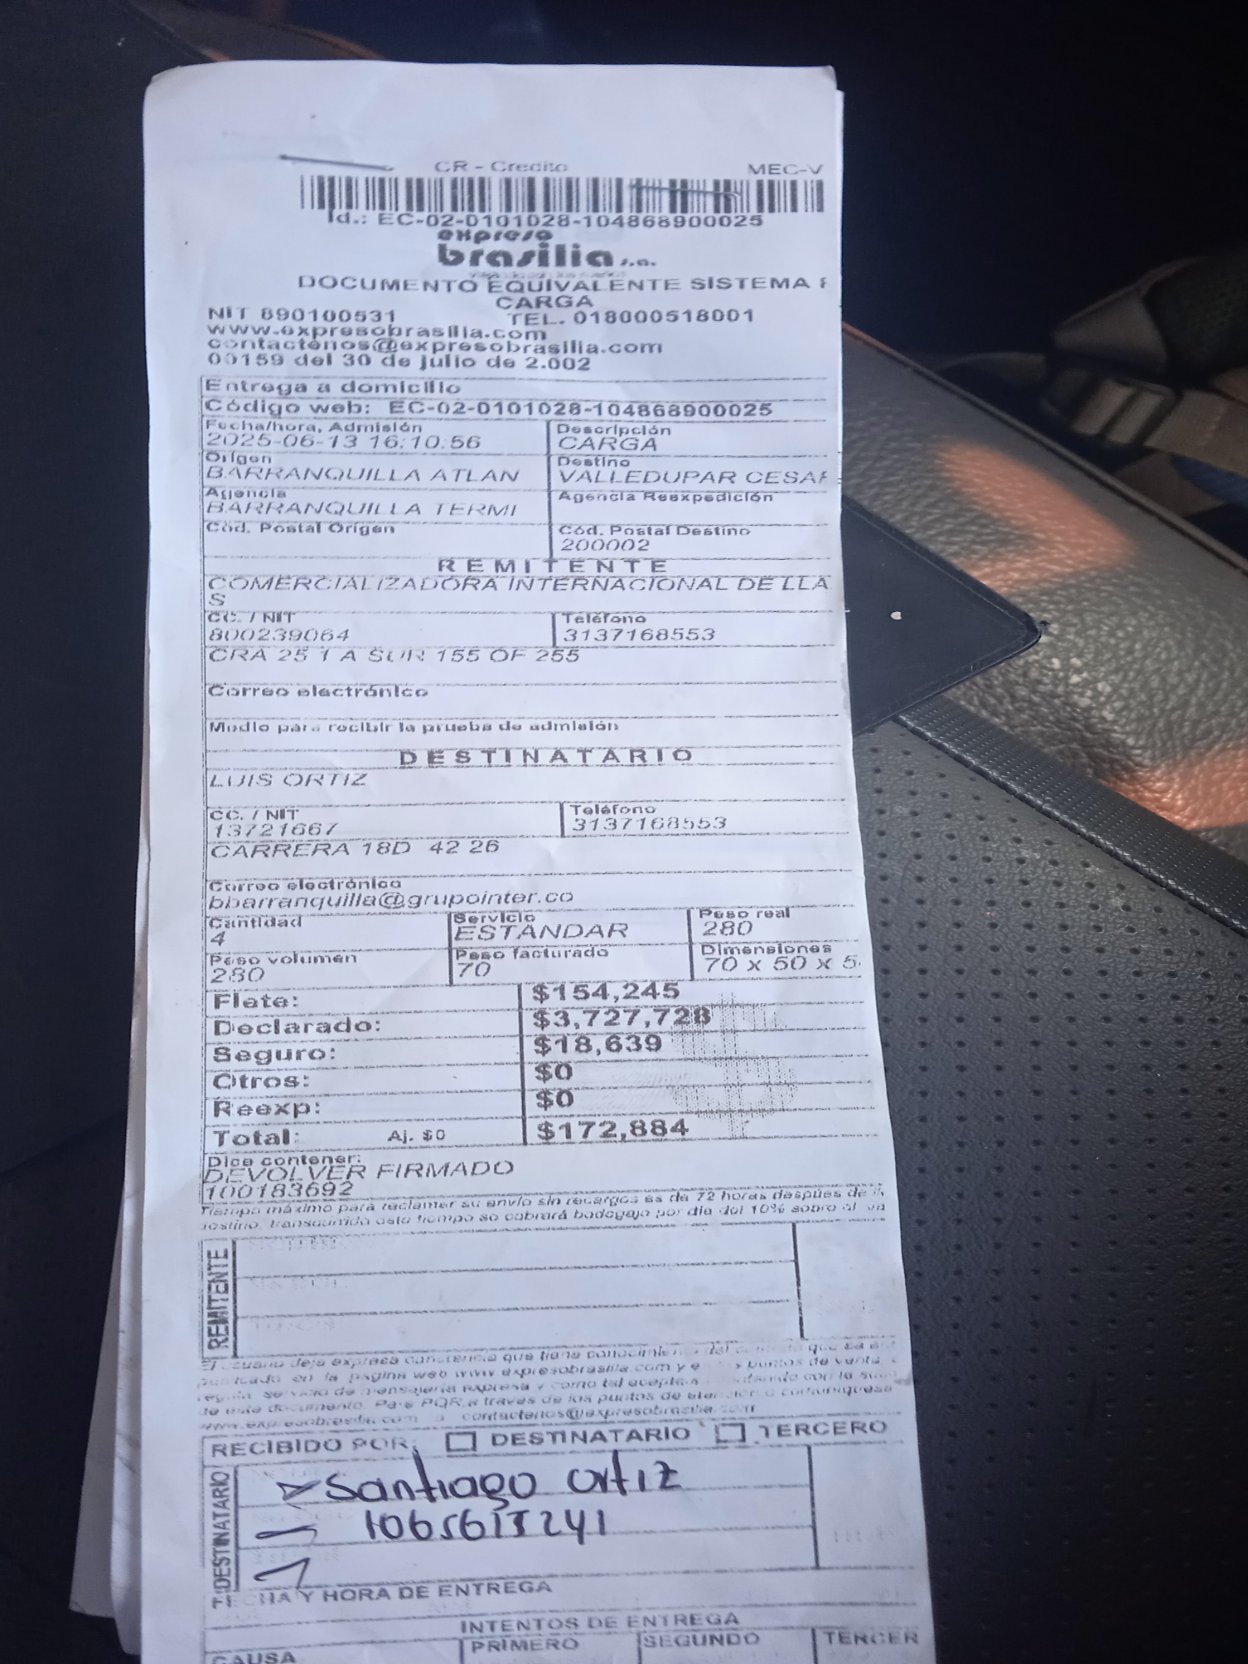 CR - Credito MEC-V
Id.: EC-02-0101028-104868900025
expreso
brasilia s.a.
DOCUMENTO EQUIVALENTE SISTEMA
CARGA
NIT 890100531 TEL. 018000518001
www.expresobrasilia.com
contactenos@expresobrasilia.com
00159 del 30 de julio de 2.002
Entrega a domicilio
Código web: EC-02-0101028-104868900025
Fecha/hora, Admisión Descripción
2025-06-13 16:10:56 CARGA
Origen Destino
BARRANQUILLA ATLAN VALLEDUPAR CESAR
Agencia Agencia Reexpedición
BARRANQUILLA TERMI
Cód. Postal Origen Cód. Postal Destino
200002
REMITENTE
COMERCIALIZADORA INTERNACIONAL DE LLA
S
CC. / NIT Teléfono
800239064 3137168553
CRA 25 1 A SUR 155 OF 255
Correo electrónico
Medio para recibir la prueba de admisión
DESTINATARIO
LUIS ORTIZ
CC. / NIT Teléfono
13721667 3137168553
CARRERA 18D 42 26
Correo electrónico
bbarranquilla@grupointer.co
Cantidad Servicio Peso real
4 ESTANDAR 280
Peso volumen Peso facturado Dimensiones
280 70 70 x 50 x 5
Flete: $154,245
Declarado: $3,727,728
Seguro: $18,639
Otros: $0
Reexp: $0
Total: Aj. $0 $172,884
Dice contener:
DEVOLVER FIRMADO
100183692
Tiempo máximo para reclamar su envío sin recargos es de 72 horas después de
destino, transcurrido este tiempo se cobrará bodegaje por día del 10% sobre el
REMITENTE
El usuario deja expresa constancia que tiene conocimiento del que
publicado en la pagina web www.expresobrasilia.com y puntos de venta
servicio de mensajería expresa y como tal acepta con la
de este documento. Para PQR a través de los puntos de atención o comuniquese
www.expresobrasilia.com contactenos@expresobrasilia.com
RECIBIDO POR: DESTINATARIO TERCERO
DESTINATARIO
Santiago ortiz
1065613241
FECHA Y HORA DE ENTREGA
INTENTOS DE ENTREGA
CAUSA PRIMERO SEGUNDO TERCER